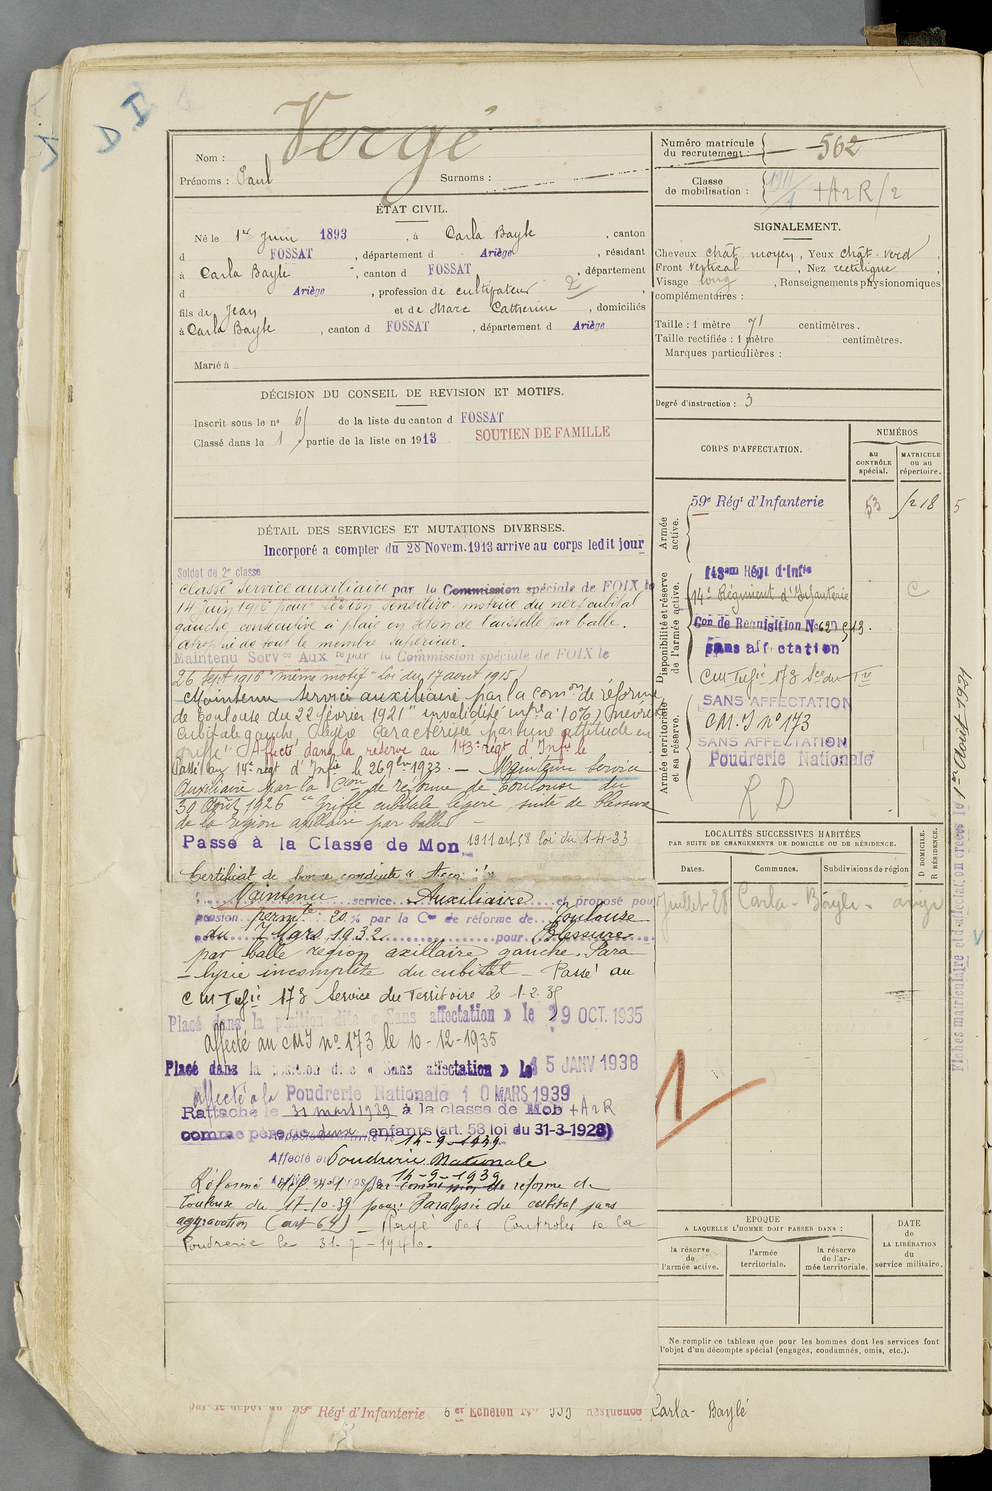 D I
Vergé
Nom :
Prénoms : Paul Surnoms :
ÉTAT CIVIL.
Né le 1er juin 1893, à Carla Bayle, canton
d FOSSAT, département d Ariège, résidant
à Carla Bayle, canton d FOSSAT, département
d Ariège, profession de cultivateur 2
fils de Jean et de Marc Catherine, domiciliés
à Carla Bayle, canton d FOSSAT, département d Ariège
Marié à
DÉCISION DU CONSEIL DE REVISION ET MOTIFS.
Inscrit sous le n° 6 de la liste du canton d FOSSAT
Classé dans la 1 partie de la liste en 1913 SOUTIEN DE FAMILLE
DÉTAIL DES SERVICES ET MUTATIONS DIVERSES.
Incorporé a compter du 28 Novem. 1913 arrive au corps ledit jour
Soldat de 2e classe
Classé Service auxiliaire par la Commission spéciale de FOIX le
14 juin 1916 pour lésion sensitivo-motrice du nerf cubital
gauche, consécutive à plaie en séton de l'aisselle par balle.
Atrophie de tout le membre supérieur.
Maintenu Serv ce Aux re par la Commission spéciale de FOIX le
26 Sept 1916 "même motif" Loi du 17 août 1915
Maintenu Service auxiliaire par la Comon de réforme
de Toulouse du 22 février 1921 "invalidité infre à 10%) névrite
cubitale gauche, légère caractérisée par une attitude en
griffe" Affecté dans la réserve au 143e régt d'Infie le
Passé au 14e régt d'Infie le 26 9bre 1923. - Maintenu Service
Auxiliaire par la Con de réforme de Toulouse du
30 Août 1926 "Griffe cubitale légère suite de blessure
de la région axillaire par balle" -
Passé à la Classe de Mon 1911 art 58 loi du 1-4-23
Certificat de bonne conduite "
Maintenu service Auxiliaire et proposé pour
pension permte 20 % par la Con de réforme de Toulouse
du 7 Mars 1932 pour Blessure
par balle région axillaire gauche. Para-
- lysie incomplète du cubital - Passé au
CM Tnfie 173 Service du Territoire le 1-2-35
Placé dans la position dite « Sans affectation » le 29 OCT. 1935
affecté au CMI n° 173 le 10-12-1935
Placé dans la position dite « Sans affectation » le 15 JANV 1938
affecté à la Poudrerie Nationale 10 MARS 1939
Rattaché le 31 mars 1939 à la classe de Mob +A2R
comme père de deux enfants (art. 58 loi du 31-3-1928)
14-9-1939
Affecté à Poudrerie Nationale
14-9-1939
Réformé par commission de réforme de
Toulouse du 17-10-39 pour: Paralysie du cubital sans
aggravation (art 64) - Rayé des Contrôles de la
Poudrerie le 31-7-1940.
par le dépôt du 59e Régt d'Infanterie 6 er Echelon N° 559 Résidence Carla-Baylé
Numéro matricule du recrutement : 562
Classe de mobilisation : +A2R/2
SIGNALEMENT.
Cheveux chât moyen, Yeux chât verd
Front Vertical, Nez rectiligne,
Visage long, Renseignements physionomiques
complémentaires :
Taille : 1 mètre 71 centimètres.
Taille rectifiée : 1 mètre centimètres.
Marques particulières :
Degré d'instruction : 3
CORPS D'AFFECTATION.
NUMÉROS
au CONTRÔLE spécial.
MATRICULE ou au répertoire.
Armée active.
59e Régt d'Infanterie 53 218 5
Disponibilité et réserve de l'armée active.
143em Régt d'Infie
14e Régiment d'Infanterie C
Con de Requisition No
sans affectation
CM Infie 173 Sce du Tre
Armée territoriale et sa réserve.
SANS AFFECTATION
CM.I n° 173
SANS AFFECTION
Poudrerie Nationale
R D
LOCALITÉS SUCCESSIVES HABITÉES
PAR SUITE DE CHANGEMENTS DE DOMICILE OU DE RÉSIDENCE.
Dates. Communes. Subdivisions de région
D DOMICILE. R RÉSIDENCE.
Juillet 28 Carla-Bayle-
1
ÉPOQUE
A LAQUELLE L'HOMME DOIT PASSER DANS :
la réserve de l'armée active.
l'armée territoriale.
la réserve de l'armée territoriale.
DATE de LA LIBÉRATION du service militaire.
Ne remplir ce tableau que pour les hommes dont les services font
l'objet d'un décompte spécial (engagés, condamnés, omis, etc.).
Fiches matriculaire et d'affectation créées le 1er Août 1921